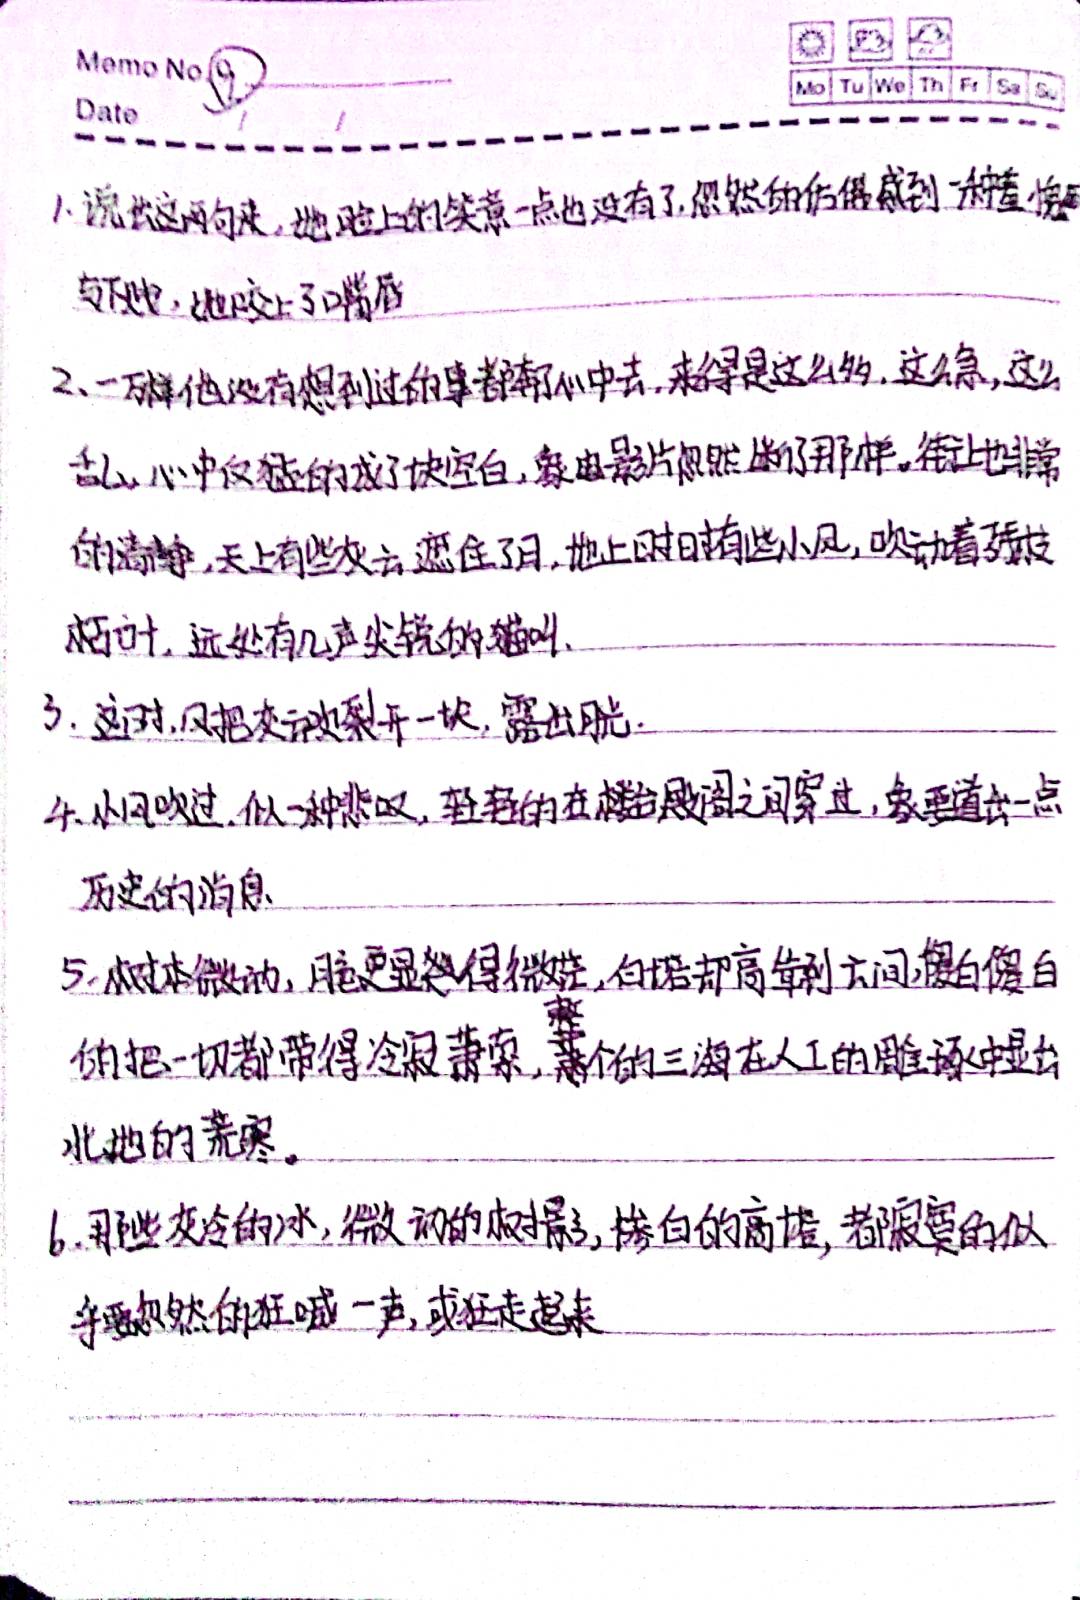 Memo No. 9
12
Date / /
Mo Tu We Th Fr Sa Su
1. 说出这两句来，她脸上的笑意一点也没有了，忽然的仿佛感到一种羞愧
与下贱，她咬上了嘴唇
2、一万样他没有想到过的事都奔了心中去，来得是这么多，这么急，这么
乱，心中反猛的成了块空白，象电影片忽然断了那样。街上也非常
的清静，天上有些灰云遮住了月，地上时时有些小风，吹动着残枝
枯叶，远处有几声尖锐的猫叫.
3. 这时，风把灰云吹裂开一块，露出月光.
4、小风吹过，似一种悲叹，轻轻的在楼台殿阁之间穿过，象要道出一点
历史的消息、
5、树木微动，月色更显得微茫，白塔却高耸到云间，傻白傻白
的把一切都带得冷寂萧索，整个的三海在人工的雕琢中显出
北地的荒寒。
6. 那些灰冷的冰，微动的树影，惨白的高塔，都寂寞的似
乎要忽然的狂喊一声，或狂走起来